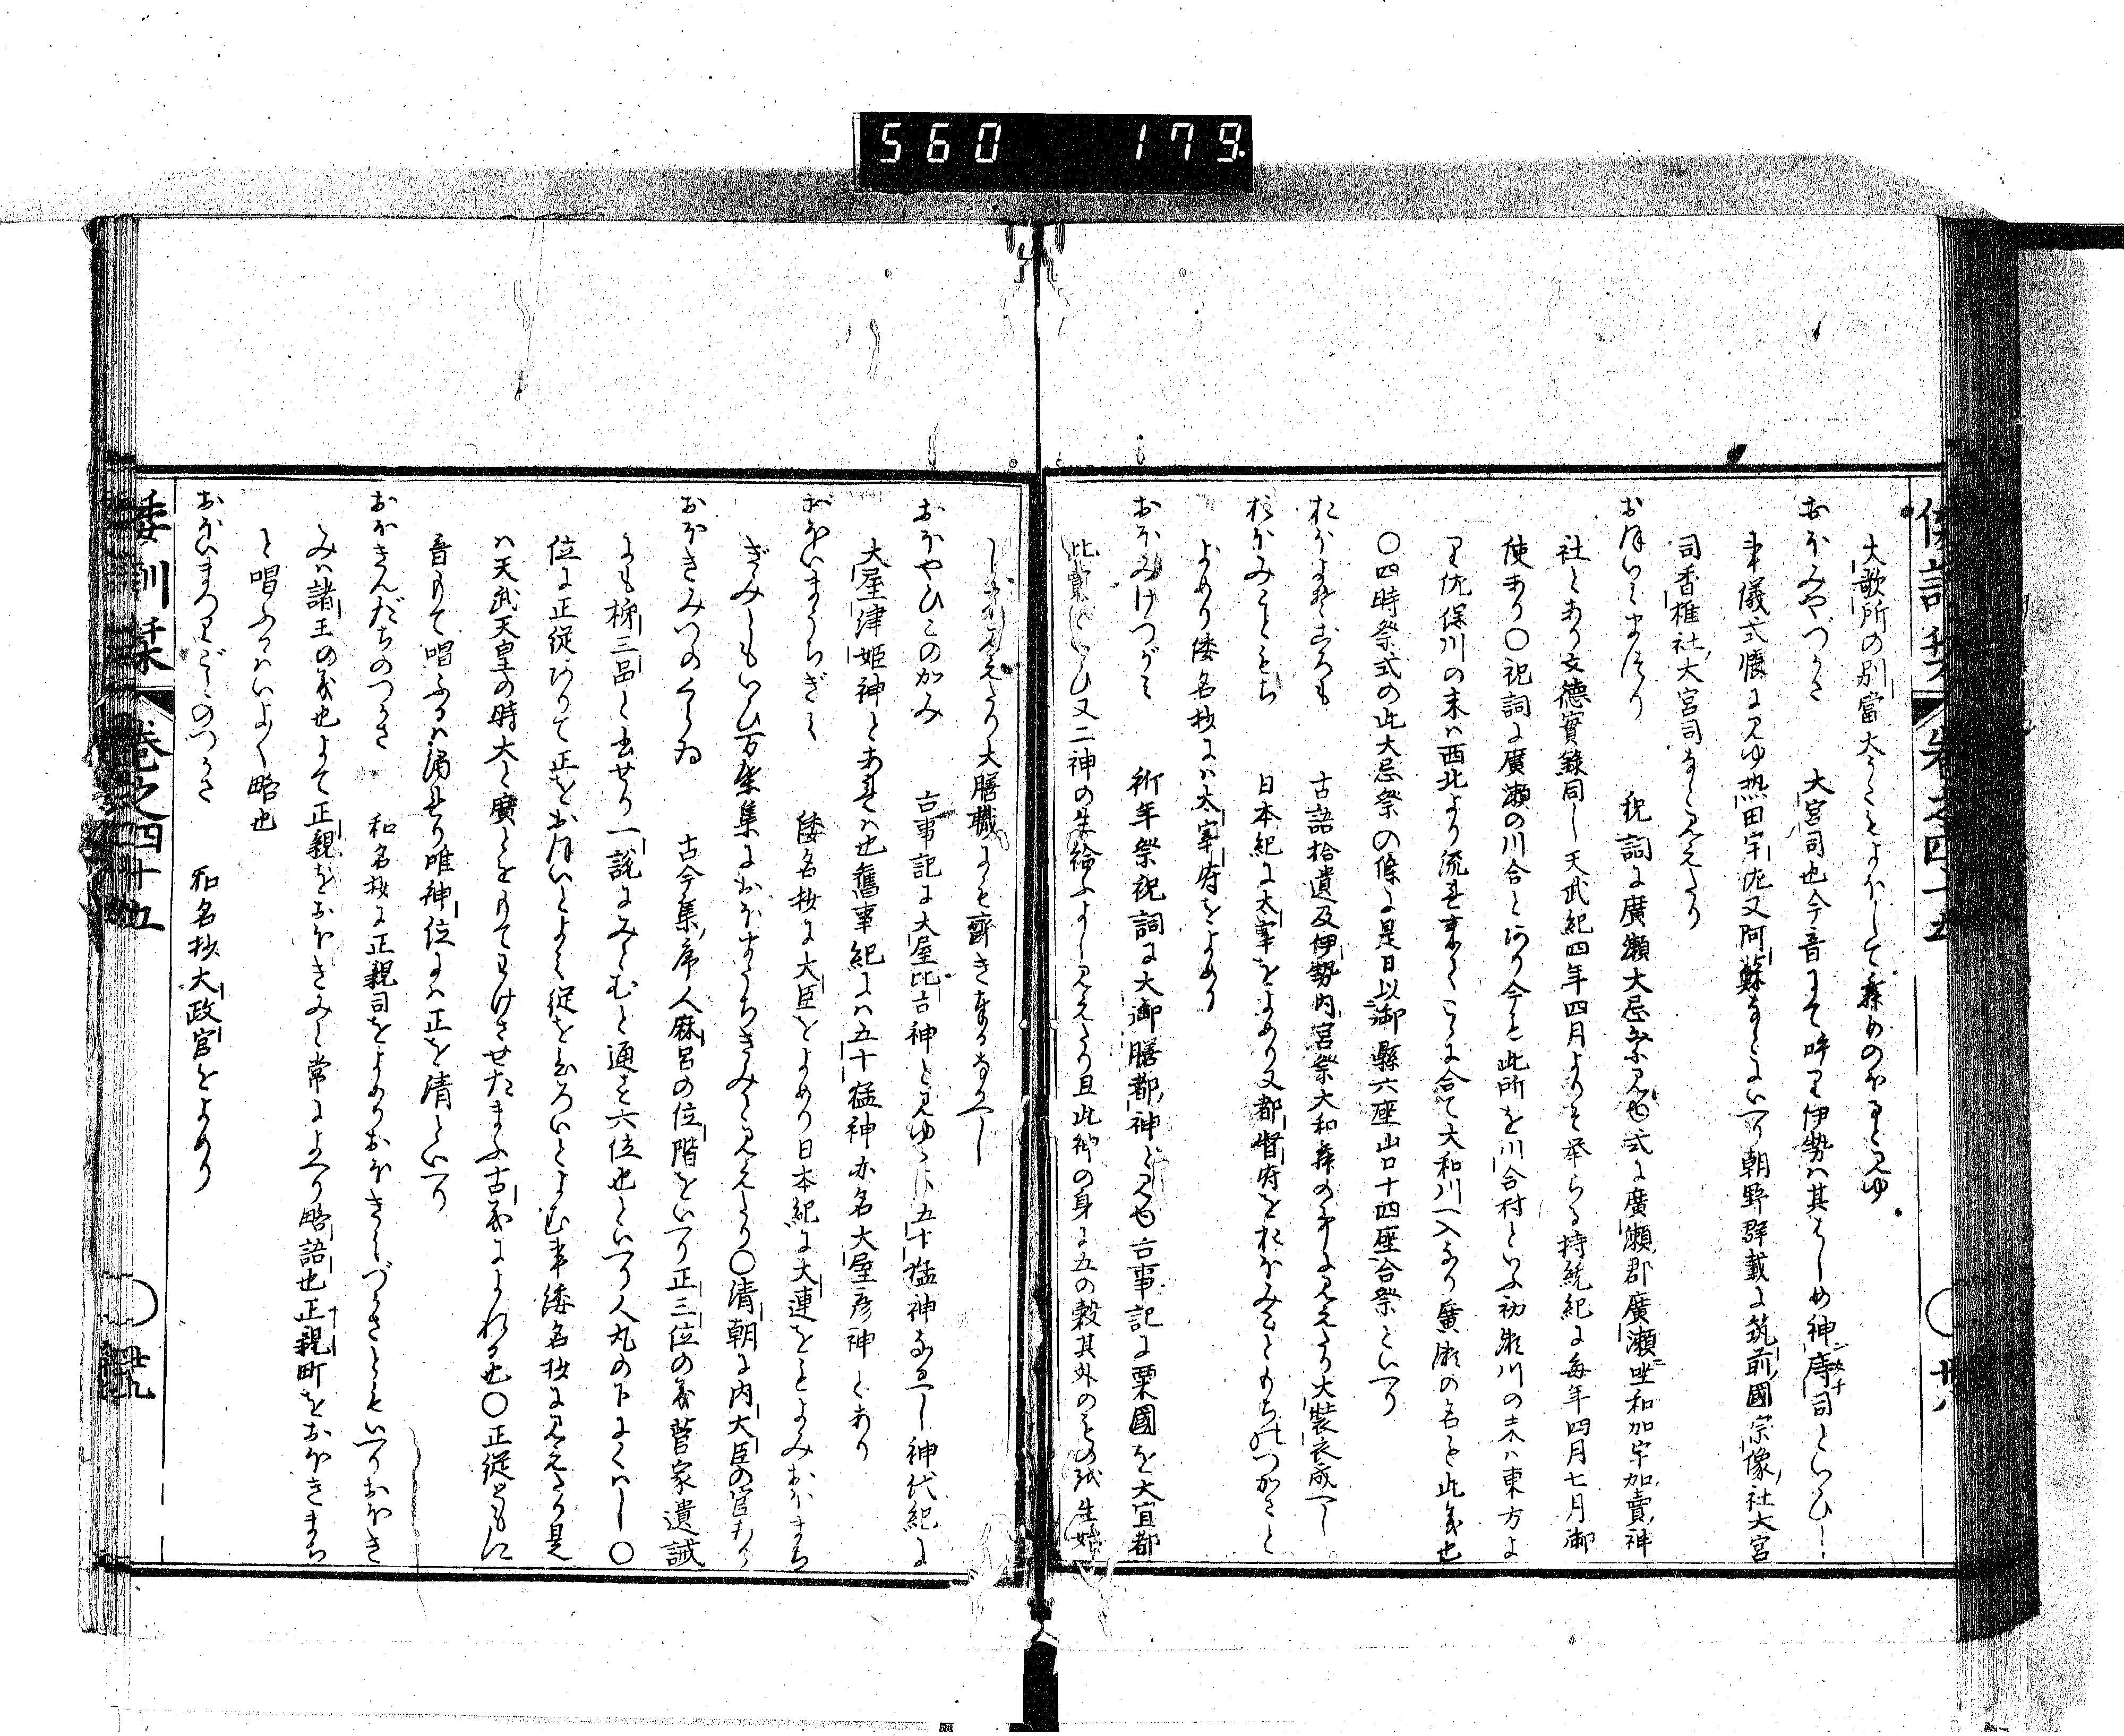 560 179
倭訓栞 巻之四十五 廿八
大歌所の別當大うたをよほして舞めのほりミゆ
おほみやづかさ 大宮司也今音にて呼り伊勢ハ其はしめ神庤司といひし
事儀式帳に見ゆ熱田宇佐又阿蘇なとにいへり朝野群載に筑前國宗像社大宮
司香椎社大宮司なとみえたり
おほいミまつり 祝詞に廣瀬大忌祭見ゆ式に廣瀬郡廣瀬坐和加宇加賣神
社とあり文德實錄同し天武紀四年四月よりそ挙らる持統紀に毎年四月七月御
使あり〇祝詞に廣瀬の川合とあり今も此所を川合村といふ初瀬川の末ハ東方よ
り佐保川の末ハ西北より流れ来てこゝに合て大和川へ入なり廣瀬の名も此義也
〇四時祭式の此大忌祭の條に是日以御縣六座山口十四座合祭といへり
古語拾遺及伊勢内宮祭大和舞の事に見えたり大装衣成へし
おほみこともち 日本紀に太宰をよめり又都督府をおほみこともちのつかさと
よめり倭名抄にハ太宰府をよめり
おほみけつがミ 祈年祭祝詞に大御膳都神と見ゆ古事記に粟國を大宜都
比賣といひ又二神の生給ふよし見えたり且此神の身に五の穀其外のもの成生始
しよし見えたり大膳職にも齋き奉るなるへし
おほやひこのかみ 古事記に大屋比古神と見ゆハ五十猛神なるへし神代紀に
大屋津姫神とあれハ也舊事紀にハ五十猛神亦名大屋彦神とあり
おほいまうちぎミ 倭名抄に大臣をよめり日本紀に大連をもよみおほまち
ぎみともいひ万葉集におほまうちきみと見えたり〇清朝に内大臣の官あり
おほきみつのくらゐ 古今集序人麻呂の位階をいへり正三位の義菅家遺誡
にも柿三品と書せり一説にみとむと通を六位也といへり人丸の下にくハし〇
位に正従ありて正をおほいとよミ従をひろいとよむ事倭名抄に見えたり是
ハ天武天皇の時大と廣とをもてわけさせたまふ古義によれる也〇正従ともに
音もて唱ふるハ満せり唯神位にハ正を清といへり
おほきんだちのつかさ 和名抄に正親司をよめりおほきミづかさともいへりおほき
みハ諸王の義也よて正親をおほきみと常によへり略語也正親町をおほきまち
と唱ふるハいよ〱略也
おほいまつりごとのつかさ 和名抄大政官をよめり
倭訓栞 巻之四十五 廿九